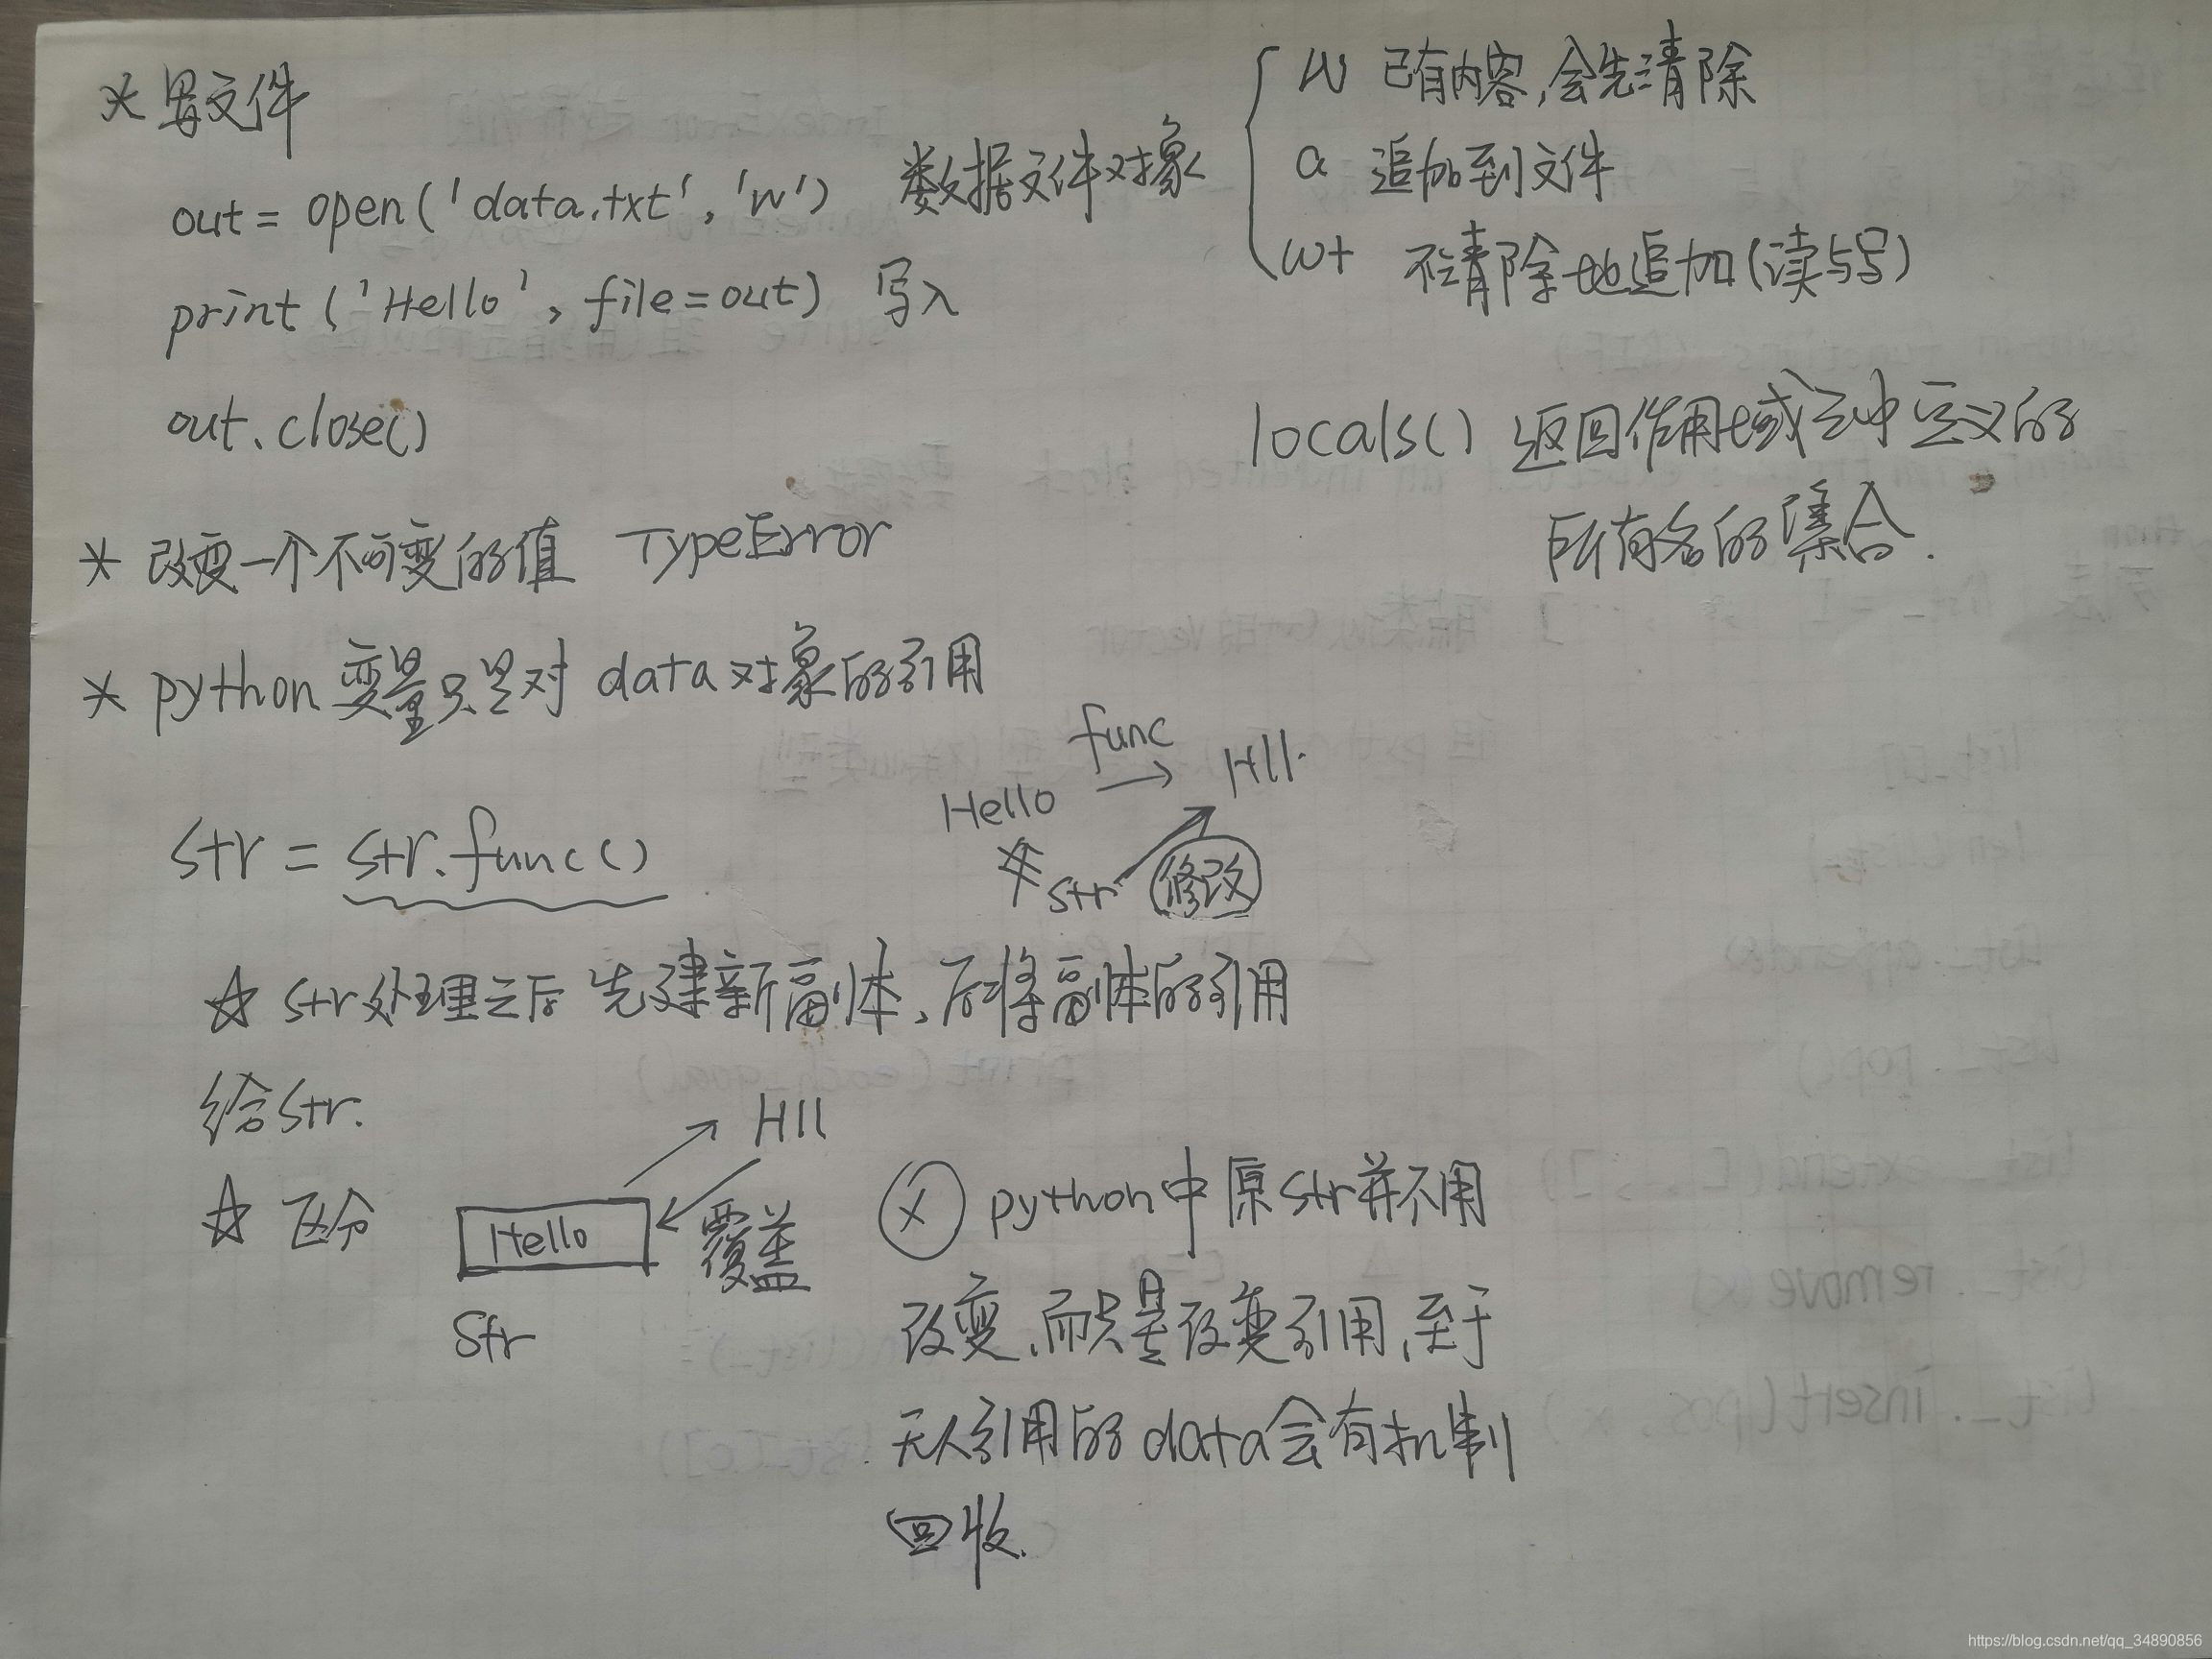 * 写文件
out = open('data.txt', 'w') 数据文件对象
w 已有内容,会先清除
a 追加到文件
w+ 不清除地追加(读与写)
print('Hello', file=out) 写入
out.close()
locals() 返回作用域中定义的
所有名的集合.
* 改变一个不可变的值 TypeError
* python变量只是对 data对象的引用
str = str.func()
Hello func → Hll.
str 修改
☆ str处理之后 先建新副体,后将副体的引用
给str.
☆ 区分
Hll
Hello
覆盖
Str
× python中原str并不用
改变,而只是改变引用,至于
无人引用的data会有机制
回收.
https://blog.csdn.net/qq_34890856